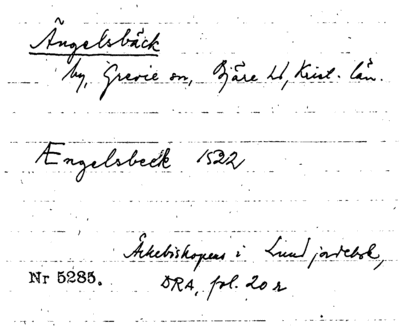 Ängelsbäck
by, Grevie sn, Bjäre hd, Krist. län.
Ængelsbeck 1522
Ärkebiskopens i Lund jordebok,
Nr 5285. DRA, fol. 20 r